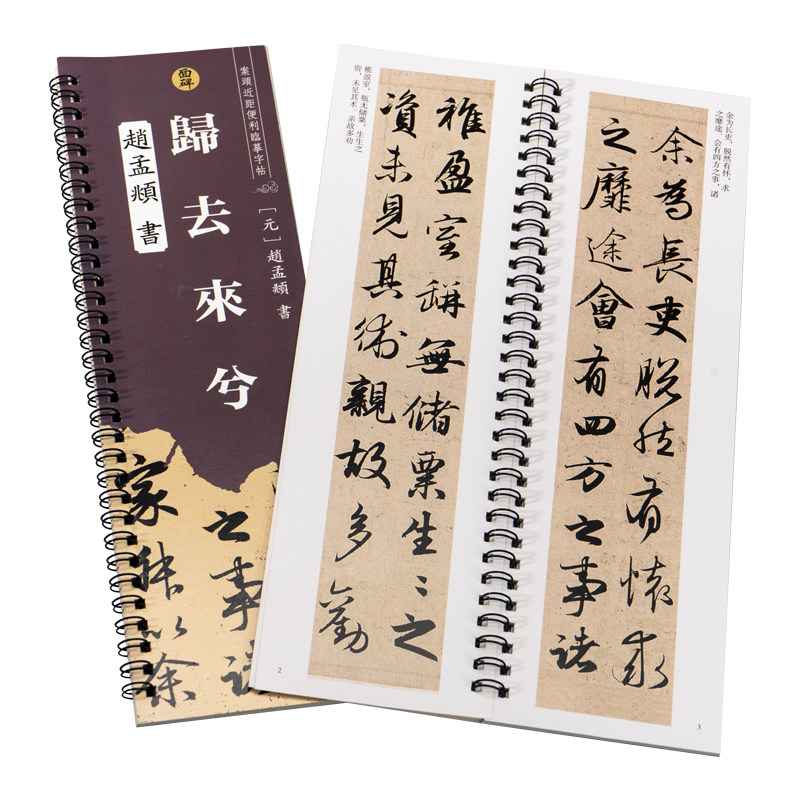 面碑
案頭近距便利臨摹字帖
歸去來兮
趙孟頫 書
［元］趙孟頫 書
之事諸
家叔以余
稚盈室，瓶无储粟，生生之
资，未见其术。亲故多劝
稚盈室缾無儲粟生〻之
資未見其術親故多勸
2
余为长吏，脱然有怀，求
之靡途。会有四方之事，诸
余為長吏脫然有懷求
之靡途會有四方之事諸
3